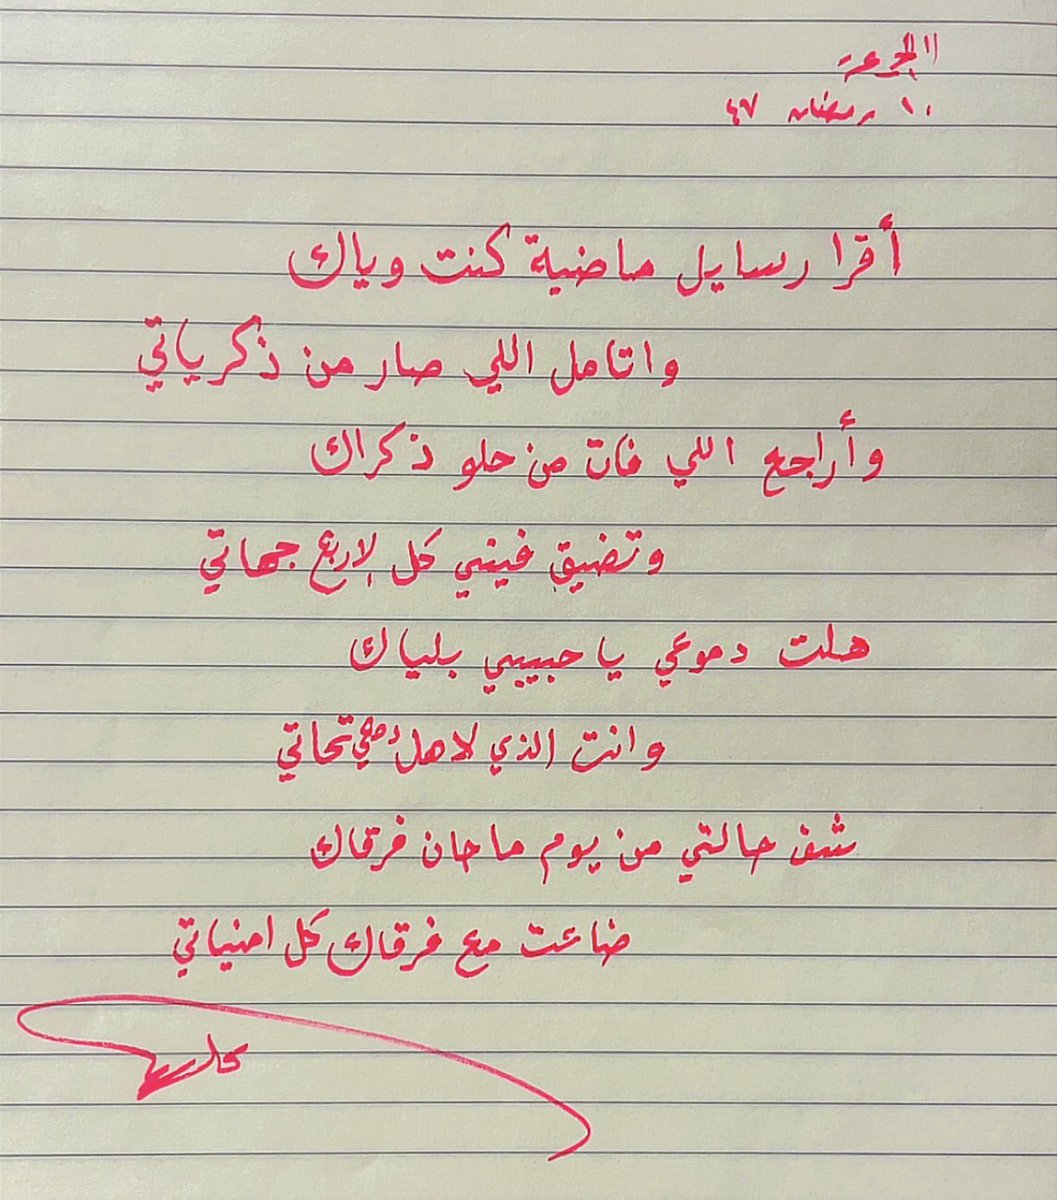 الجمعة
١٠ رمضان ٤٧
أقرا رسايل ماضية كنت وياك
واتامل اللي صار من ذكرياتي
وأراجع اللي فات من حلو ذكراك
وتضيق فيني كل لاربع جهاتي
هلت دموعي يا حبيبي بلياك
وانت الذي لاهل دمعي تحاتي
شف حالتي من يوم ما حان فرقاك
ضاعت مع فرقاك كل امنياتي